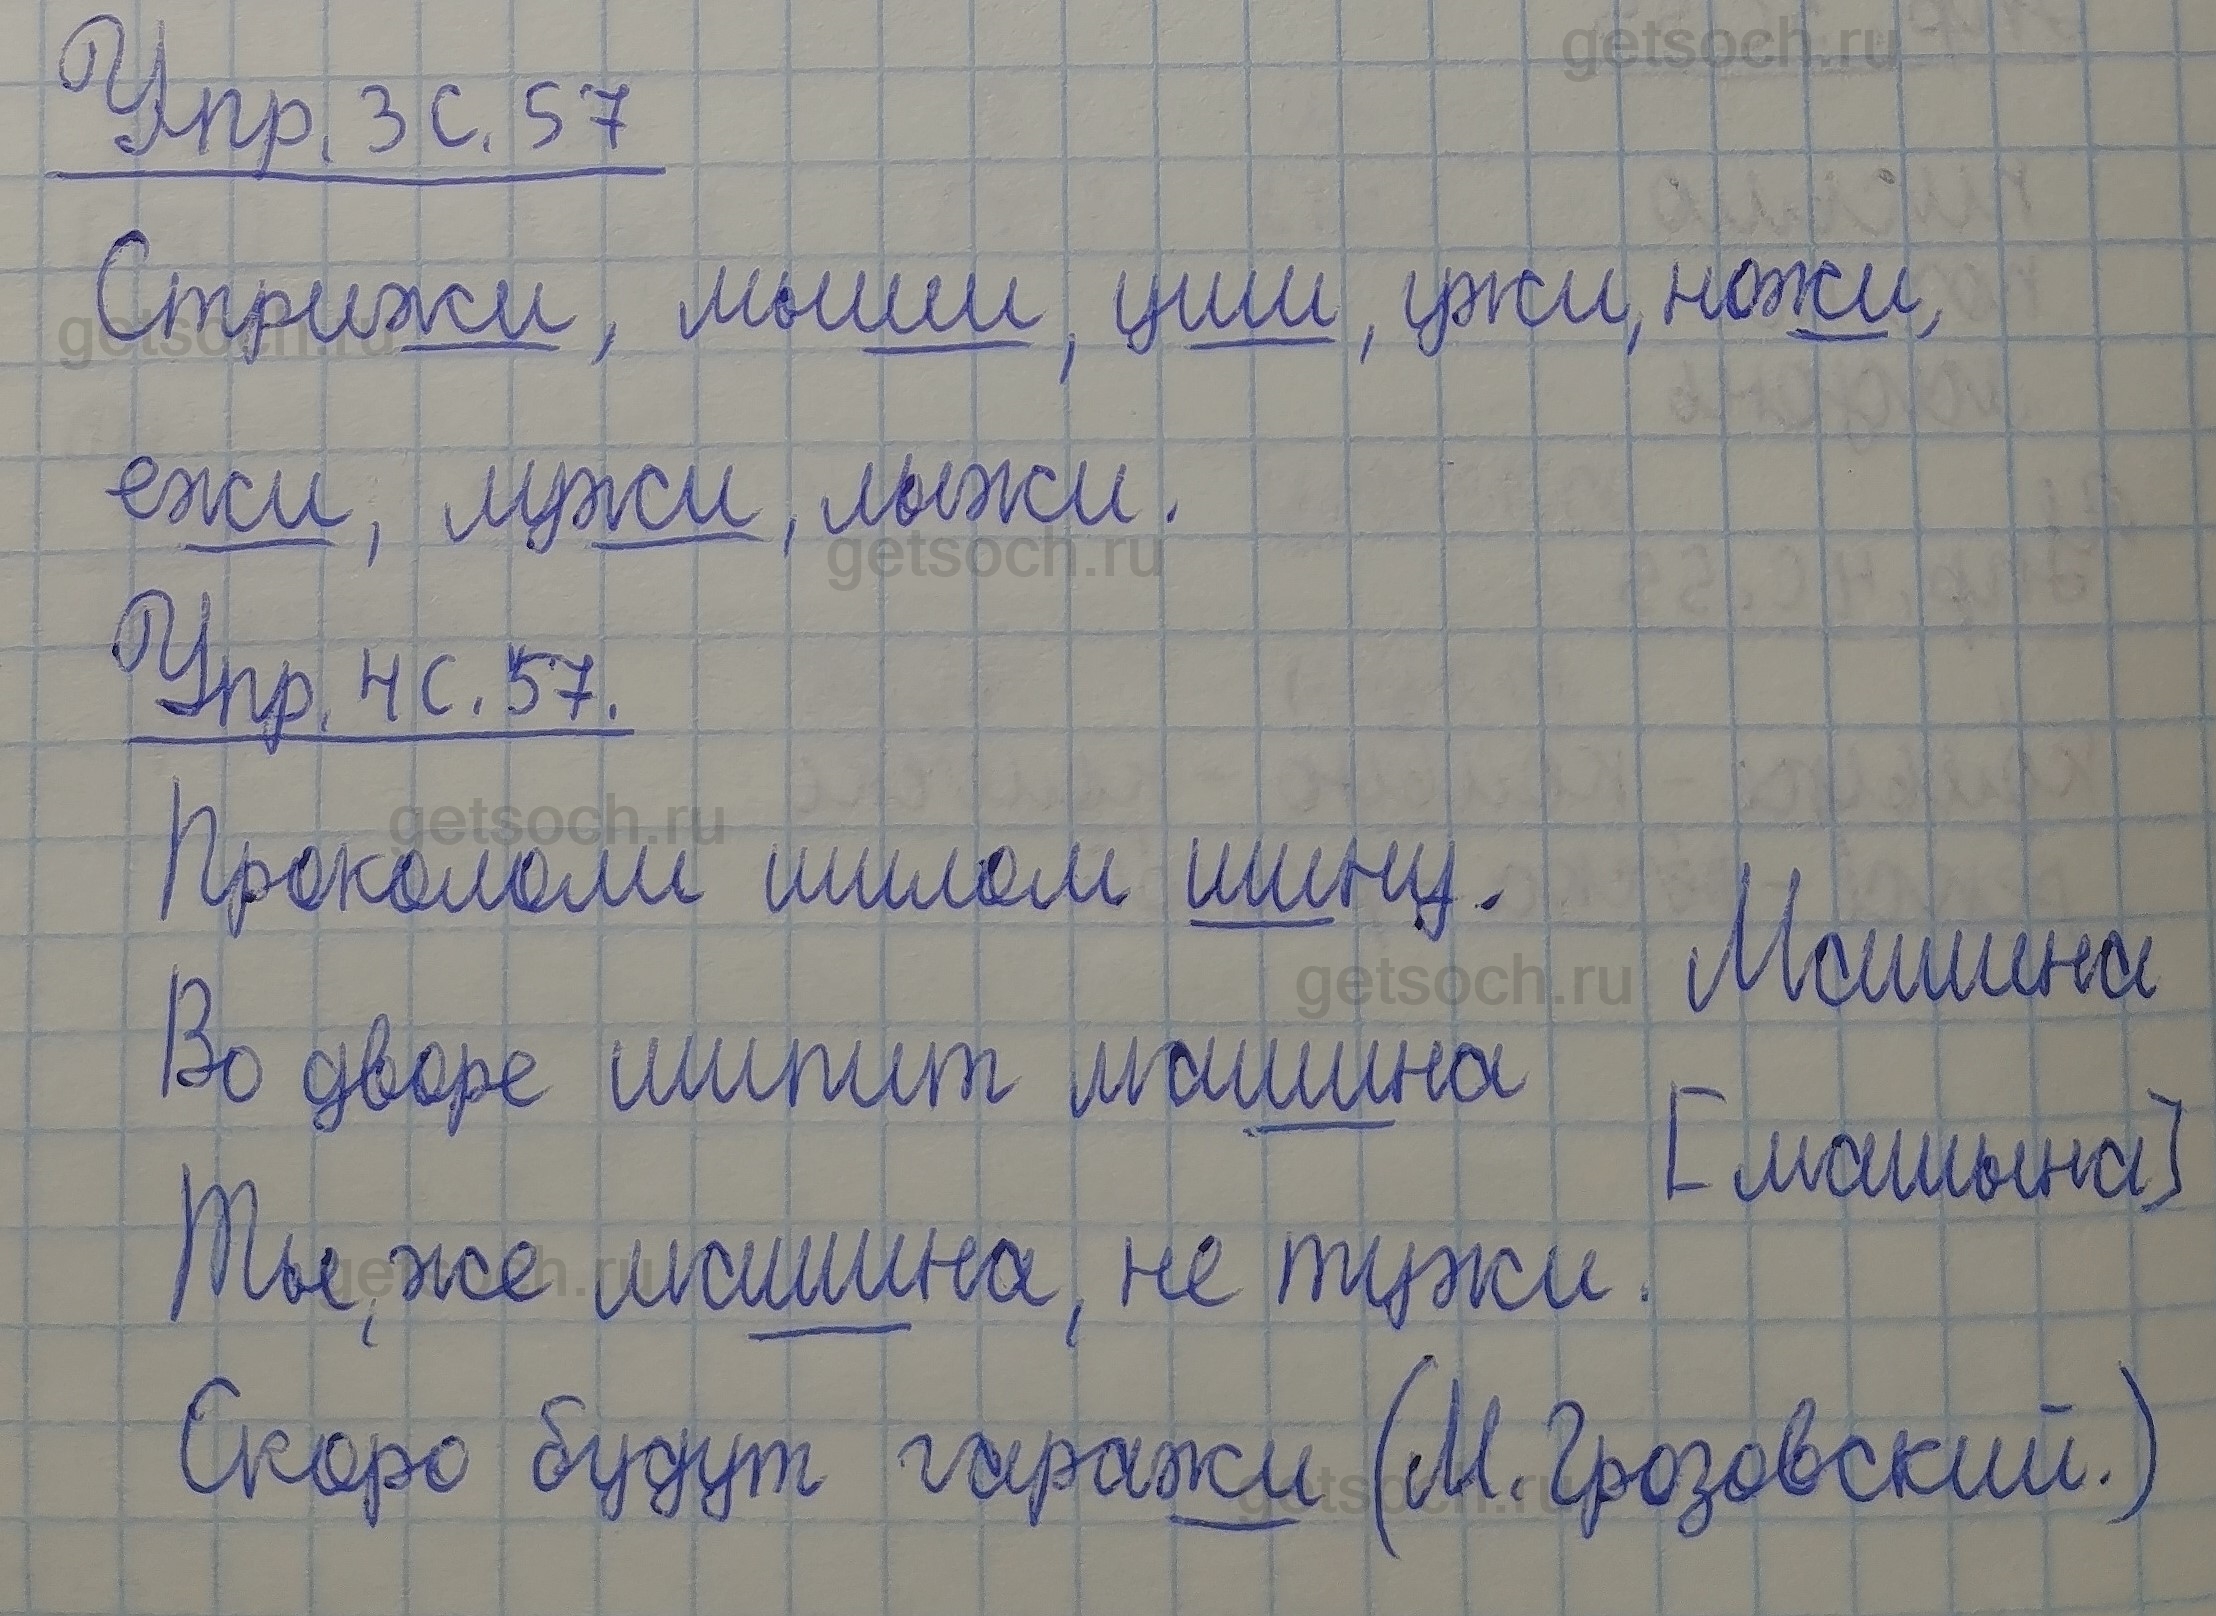 Упр. 3 с. 57
Стрижи, мыши, уши, ужи, ножи,
ежи, мужи, лыжи.
Упр. 4 с. 57.
Прокололи шилом шину.
Во дворе шипит машина
Ты, же машина, не тужи.
Скоро будут гаражи (М. Грозовский.)
Машина
[машына]
getsoch.ru
getsoch.ru
getsoch.ru
getsoch.ru
getsoch.ru
getsoch.ru
getsoch.ru